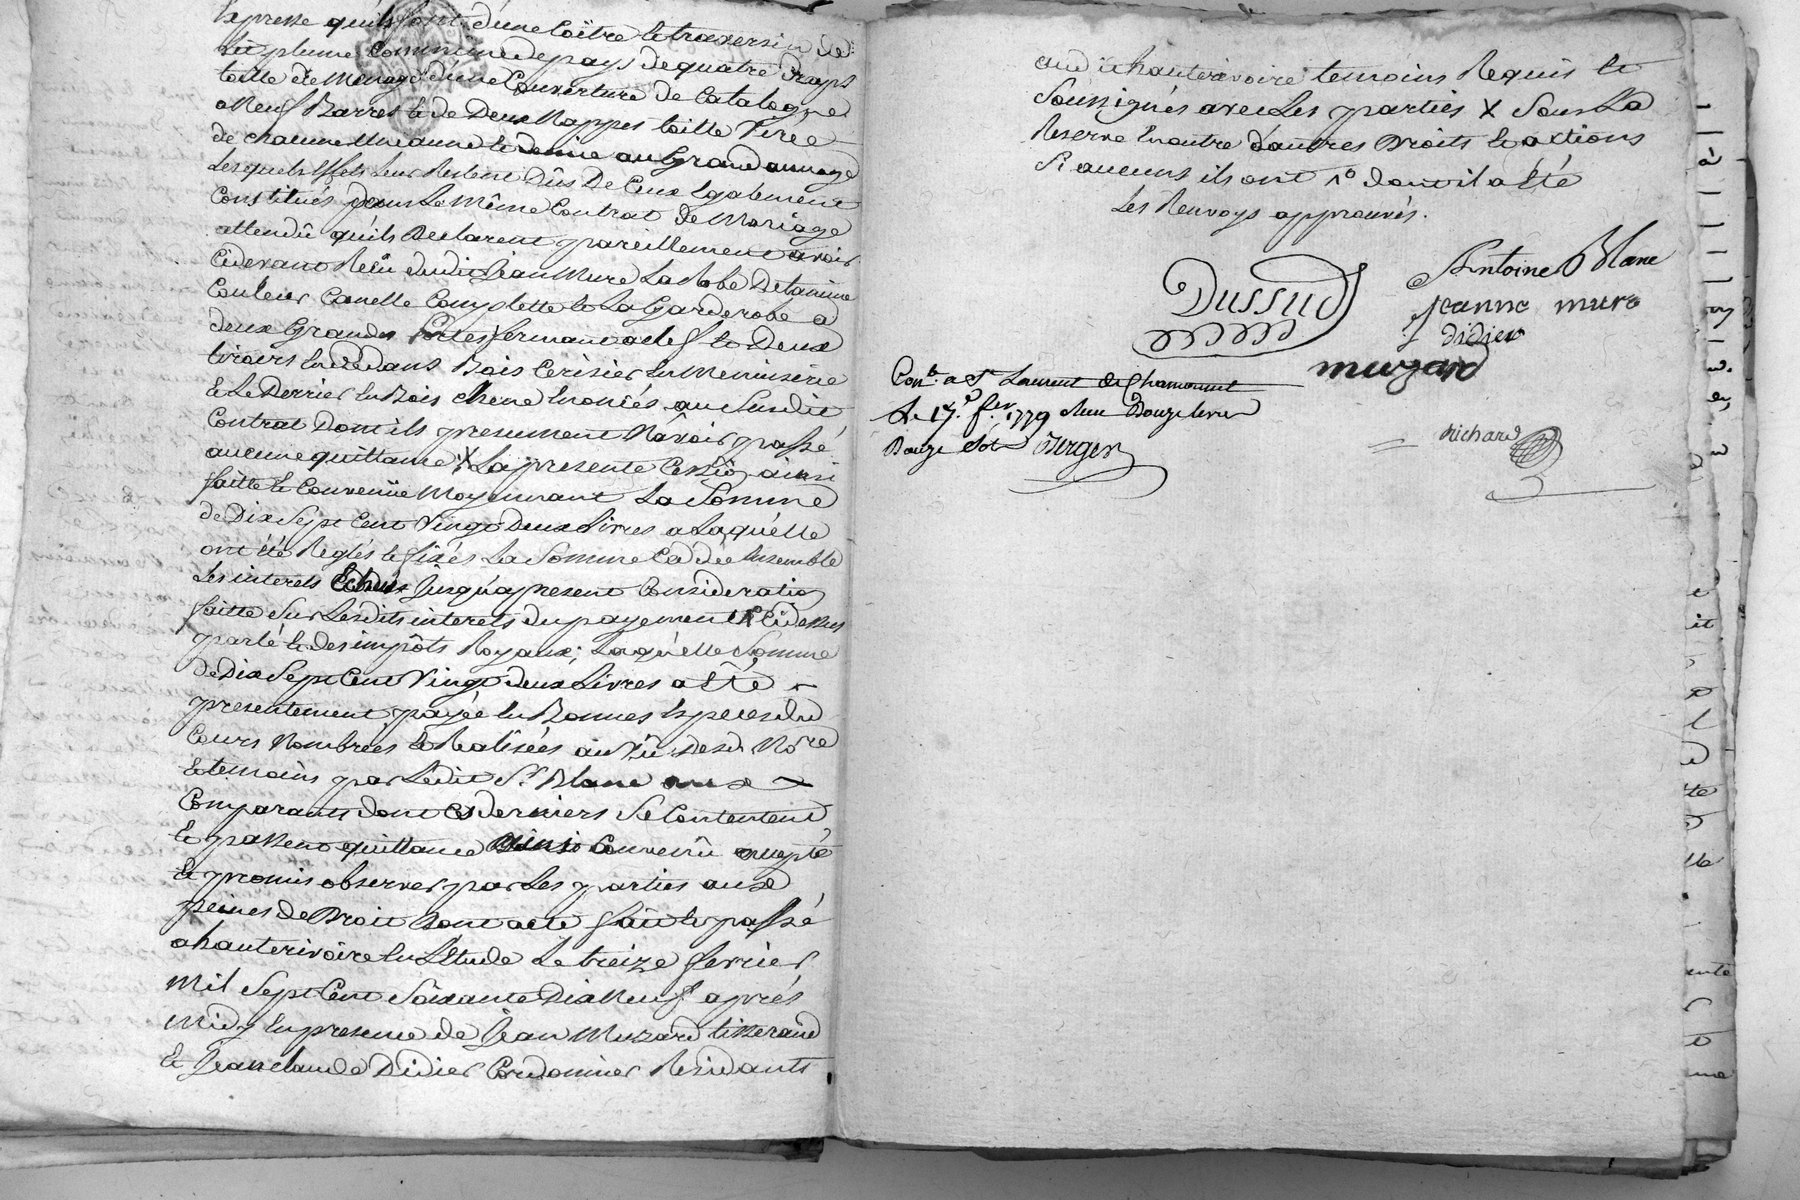 Expresse qu'ils sont d'une Coitre le traversin de
Lit plume Commune de pays de quatre draps
toille de Menage d'une Couverture de Catalogne
a Neuf Barres et de Deux Nappes toille Virée
de chacune Une aune et demie au Grand aunage
Lesquels Effets Leur Restent Dûs De Ceux Egalement
Constitués par Le Même Contrat de Mariage
attendû qu'ils Declarent pareillement avoir
Cidevant Reçû dudit Jean Mure La Robe Detamine
Couleur Canelle Complette et La Garderobe a
deux Grandes portes fermant a clef et Deux
tiroirs en dedans Bois Cerisier En Menuiserie
Et Le Derrier en Bois chene Enoncés au Susdit
Contrat Dont ils presument N'avoir passé
aucune quittance X La presente Cession ainsi
faitte et Convenüe Moyennant La Somme
de Dix Sept Cent Vingt Deux Livres a Laquelle
ont été Reglés et fixés La Somme Cedée Ensemble
Les interets Echus Jusqu'apresent Consideration
faitte Sur Lesdits interets du payement Cidessus
parlé et des impôts Royaux; Laquelle Somme
de Dix Sept Cent Vingt deux Livres a Eté
presentement payée En Bonnes Especes du
Cours Nombrées et Realisées au Vû Desd. No.re
Et temoins par Ledit S.r Blanc aux
Comparants dont Ces derniers Se Contentent
Et passent quittance Ainsi Convenû accepté
Et promis observer par Les parties aux
peines de Droit dont acte fait et passé
a hauterivoire En L'Etude Le treize fevrier
Mil Sept Cent Soixante Dix Neuf aprés
Midy En presence de Jean Muzard tisserand
Et Jean claude Didier Cordonnier Residants
aud. hauterivoire temoins Requis et
Soussignés avec Les parties X Sous La
Reserve En outre d'autres Droits et actions
Si aucuns ils ont 1.o dont il a été
Les Renvoys approuvés.
Antoine Blanc
Dussud
jeanne mure
didier
muzard
Con.té a S.t Laurent de Chamousset
Le 17.e fev.r 1779 Reçu Douze livres
Douze Sols Berger
Richard